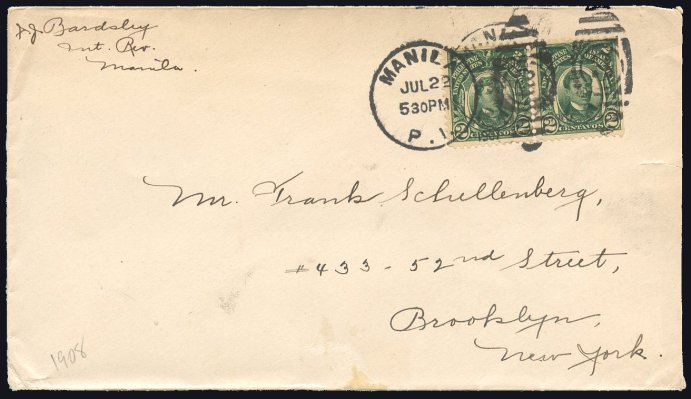 J.J. Bardsley
Int. Rev.
Manila.
MANILA
JUL 22
530PM
P.I.
2 CENTAVOS 2
2 CENTAVOS 2
Mr. Frank Schellenberg,
#433-52nd Street,
Brooklyn,
New York.
1908